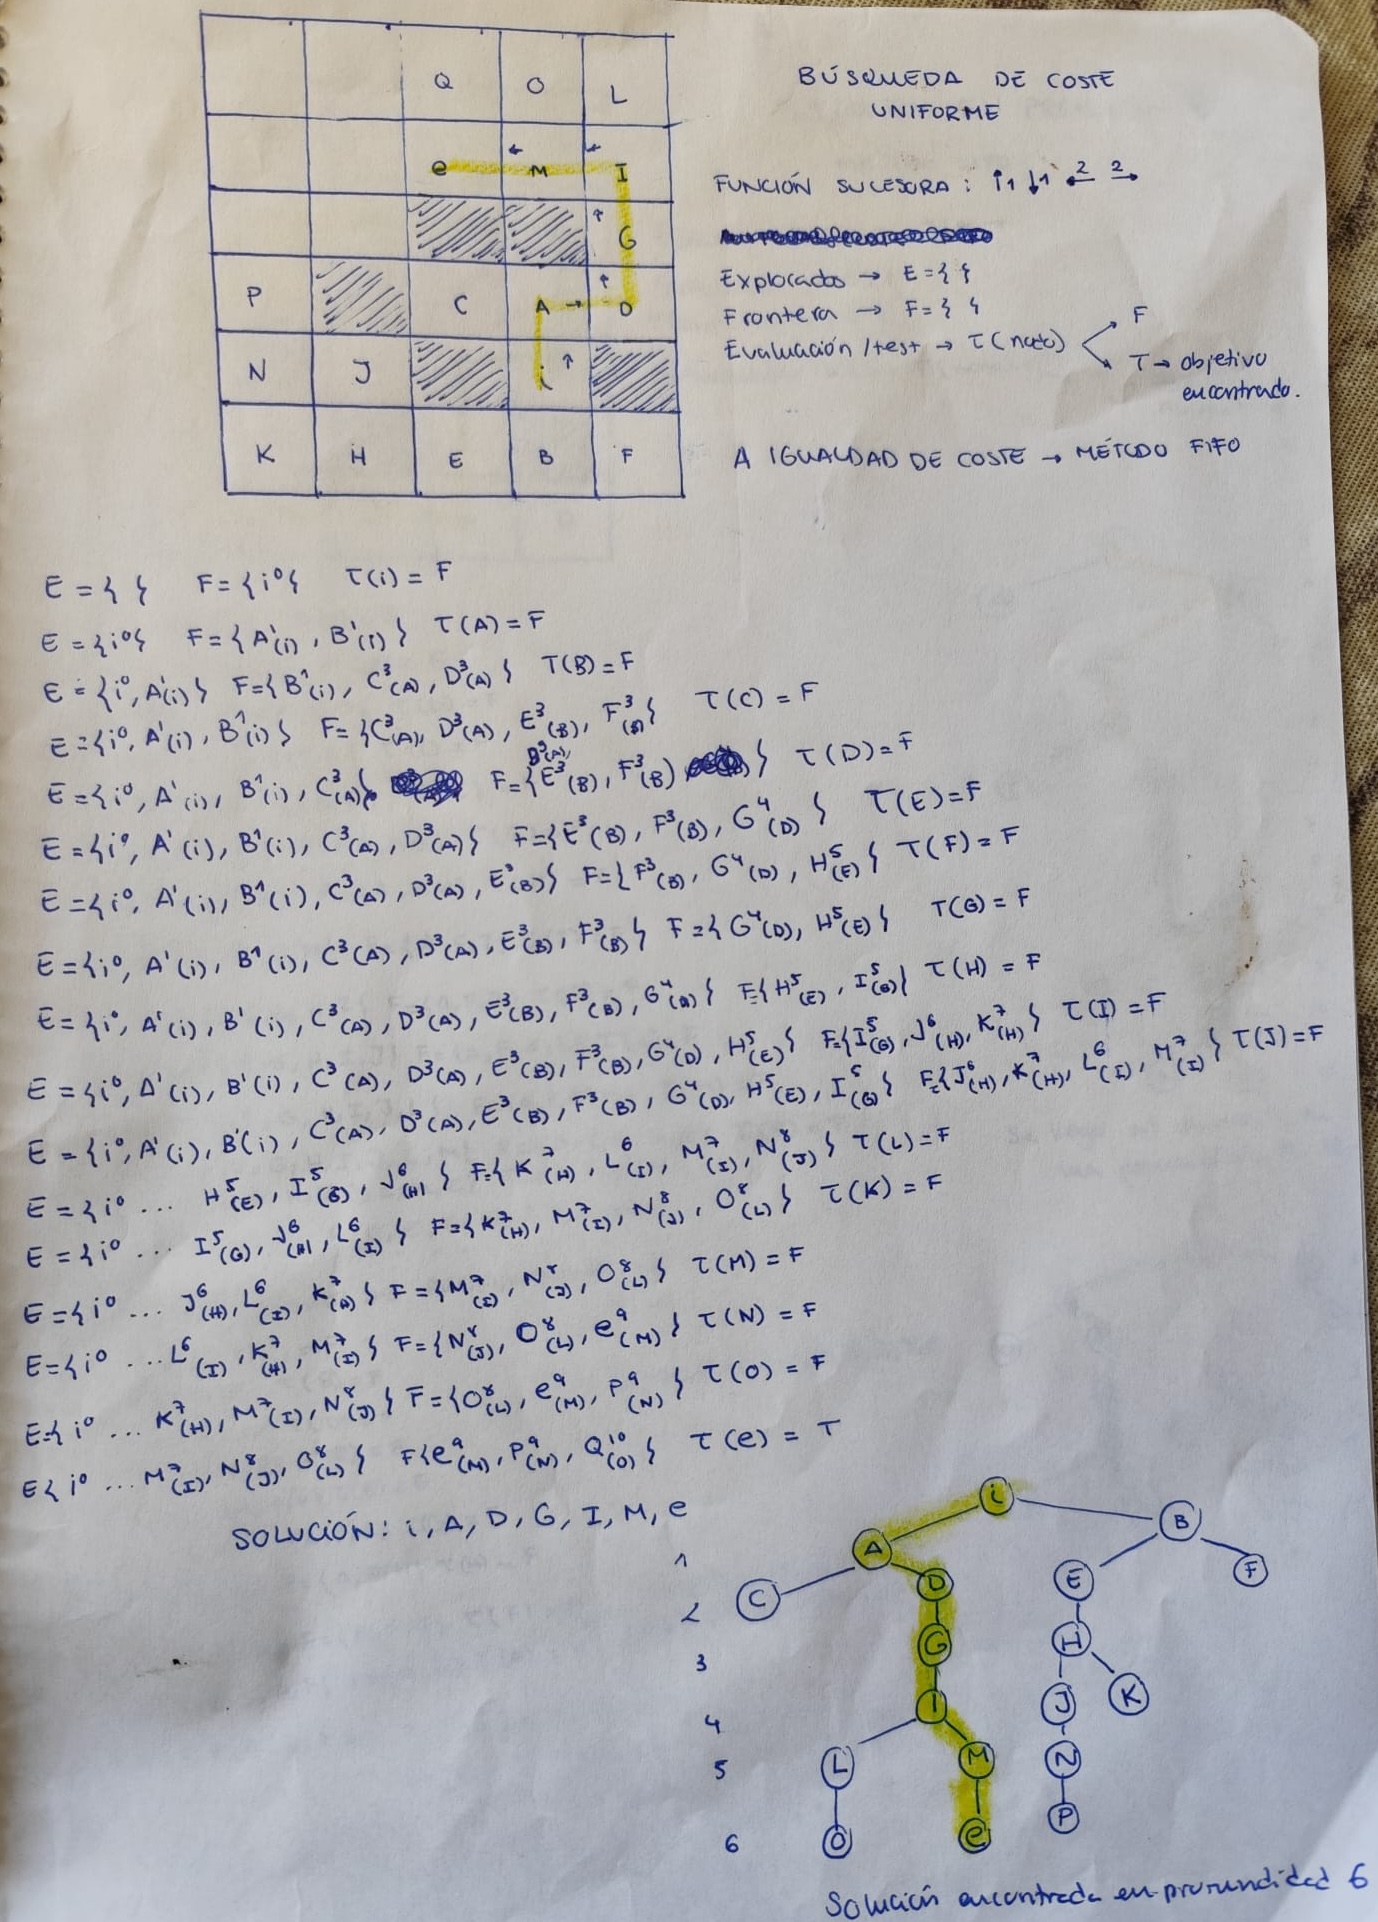 Q O L
e M I
G
P C A → D
N J i ↑
K H E B F
BÚSQUEDA DE COSTE
UNIFORME
FUNCIÓN SUCESORA : ↑1 ↓1 ←2 2→
Explorados → E={ }
Frontera → F={ }
Evaluación /test → T(nodo)
F
T → objetivo
encontrado.
A IGUALDAD DE COSTE → MÉTODO FIFO
E = { } F={i⁰} T(i) = F
E = {i⁰} F={A¹(i), B¹(i)} T(A)=F
E = {i⁰, A¹(i)} F={B¹(i), C³(A), D³(A)} T(B)=F
E={i⁰, A¹(i), B¹(i)} F={C³(A), D³(A), E³(B), F³(B)} T(C) = F
E={i⁰, A¹(i), B¹(i), C³(A)} F={D³(A), E³(B), F³(B)} T(D)=F
E={i⁰, A¹(i), B¹(i), C³(A), D³(A)} F={E³(B), F³(B), G⁴(D)} T(E)=F
E={i⁰, A¹(i), B¹(i), C³(A), D³(A), E³(B)} F={F³(B), G⁴(D), H⁵(E)} T(F)=F
E={i⁰, A¹(i), B¹(i), C³(A), D³(A), E³(B), F³(B)} F={G⁴(D), H⁵(E)} T(G) = F
E={i⁰, A¹(i), B¹(i), C³(A), D³(A), E³(B), F³(B), G⁴(D)} F={H⁵(E), I⁵(G)} T(H) = F
E={i⁰, A¹(i), B¹(i), C³(A), D³(A), E³(B), F³(B), G⁴(D), H⁵(E)} F={I⁵(G), J⁶(H), K⁷(H)} T(I) = F
E={i⁰, A¹(i), B¹(i), C³(A), D³(A), E³(B), F³(B), G⁴(D), H⁵(E), I⁵(G)} F={J⁶(H), K⁷(H), L⁶(I), M⁷(I)} T(J)=F
E={i⁰ ... H⁵(E), I⁵(G), J⁶(H)} F={K⁷(H), L⁶(I), M⁷(I), N⁸(J)} T(L)=F
E={i⁰ ... I⁵(G), J⁶(H), L⁶(I)} F={K⁷(H), M⁷(I), N⁸(J), O⁸(L)} T(K) = F
E={i⁰ ... J⁶(H), L⁶(I), K⁷(H)} F={M⁷(I), N⁸(J), O⁸(L)} T(M) = F
E={i⁰ ... L⁶(I), K⁷(H), M⁷(I)} F={N⁸(J), O⁸(L), e⁹(M)} T(N) = F
E={i⁰ ... K⁷(H), M⁷(I), N⁸(J)} F={O⁸(L), e⁹(M), P⁹(N)} T(O) = F
E{i⁰ ... M⁷(I), N⁸(J), O⁸(L)} F{e⁹(M), P⁹(N), Q¹⁰(O)} T(e) = T
SOLUCIÓN: i, A, D, G, I, M, e
i
A B
1
C D E F
2
G H
3
I J K
4
L M N
5
O e P
6
Solución encontrada en profundidad 6